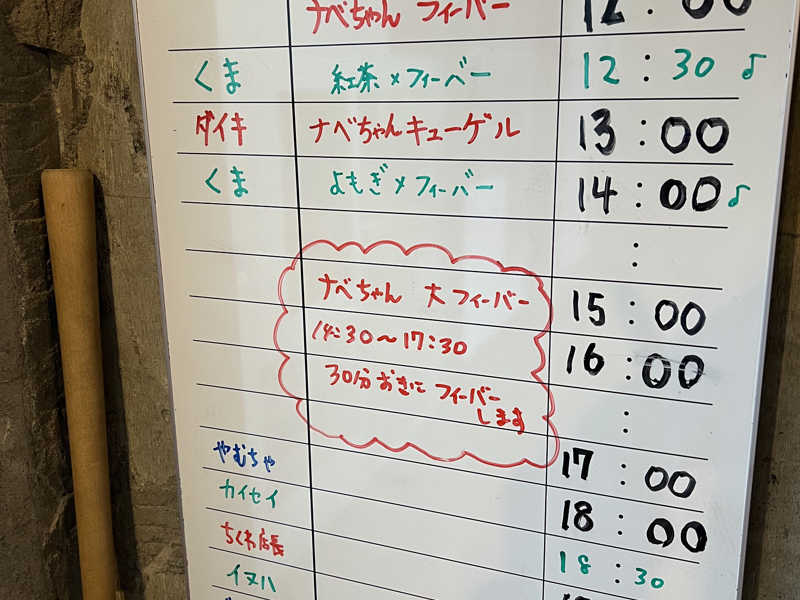 ナベちゃん フィーバー 12:00
くま 紅茶×フィーバー 12:30♪
ダイキ ナベちゃんキューゲル 13:00
くま よもぎ×フィーバー 14:00♪
:
ナベちゃん 大フィーバー 15:00
14:30〜17:30 16:00
30分おきに フィーバー
します :
やむちゃ 17:00
カイセイ 18:00
ちくわ店長 18:30
イヌハ